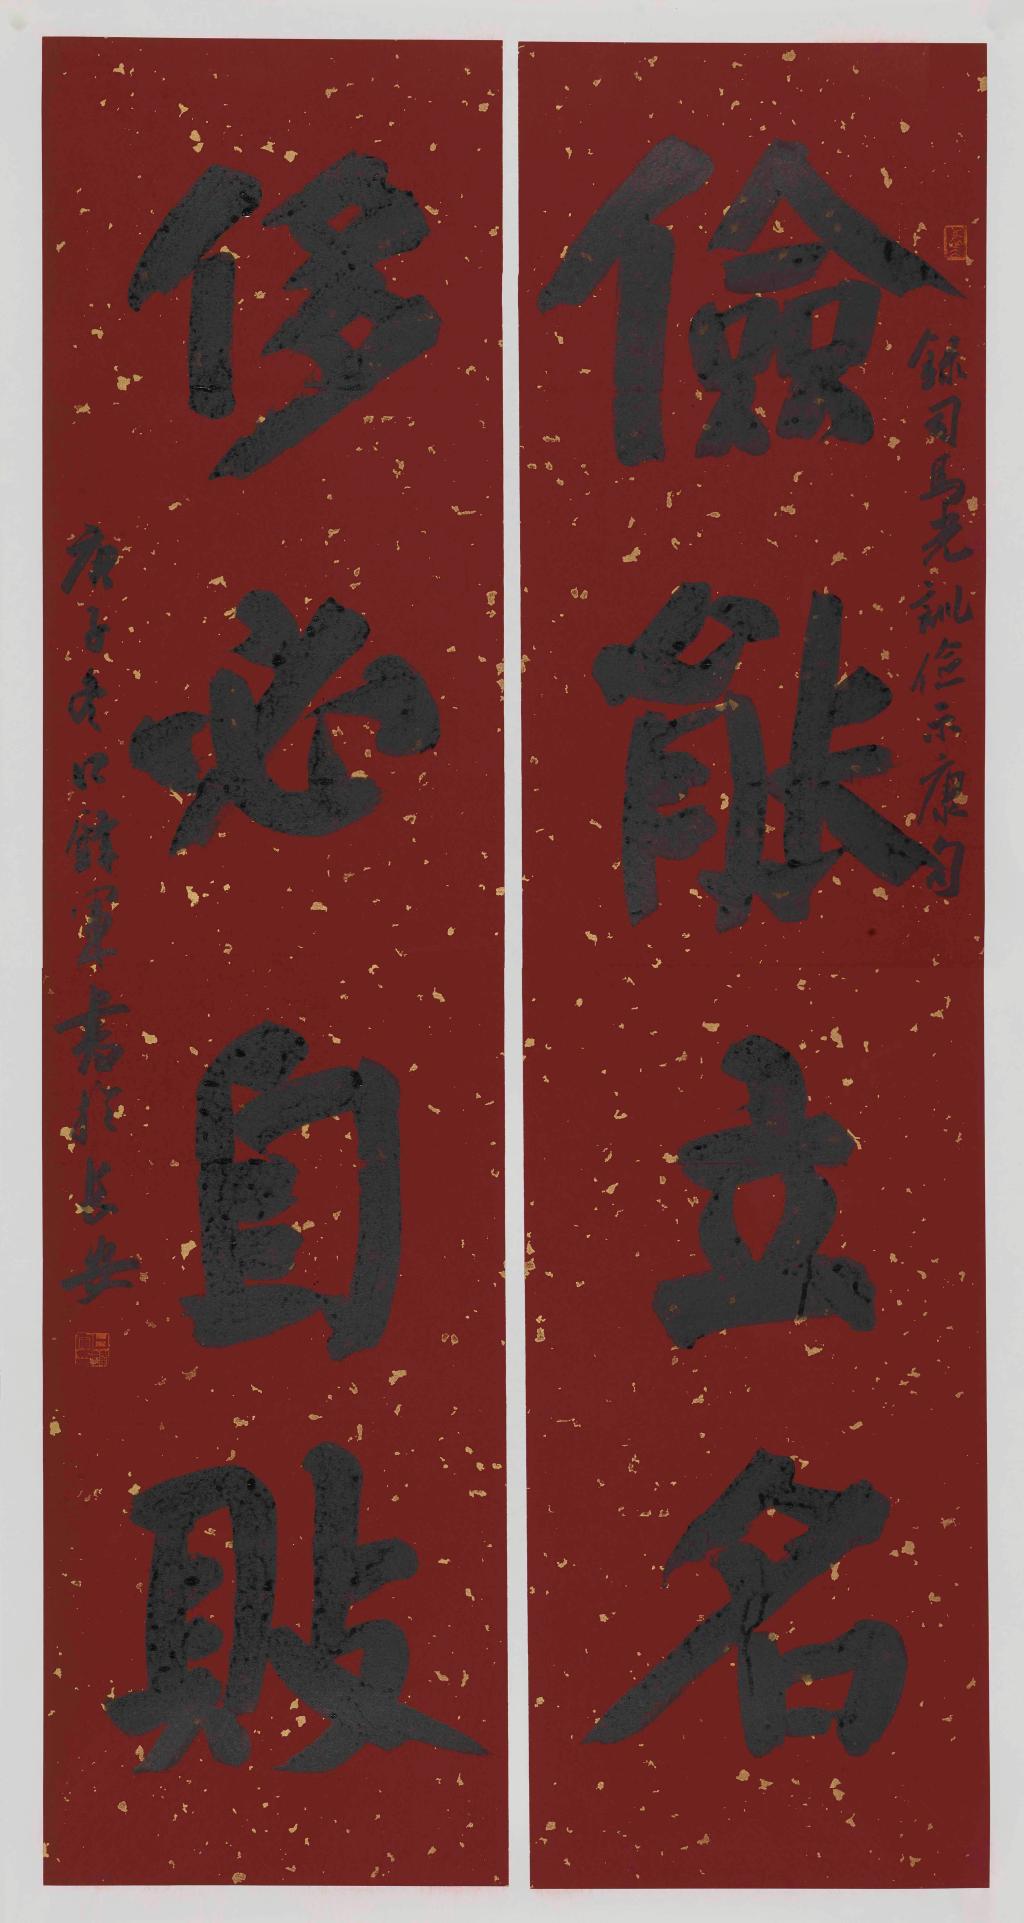 儉能立名
錄司馬光訓儉示康句
侈必自敗
庚子冬軍書於長安